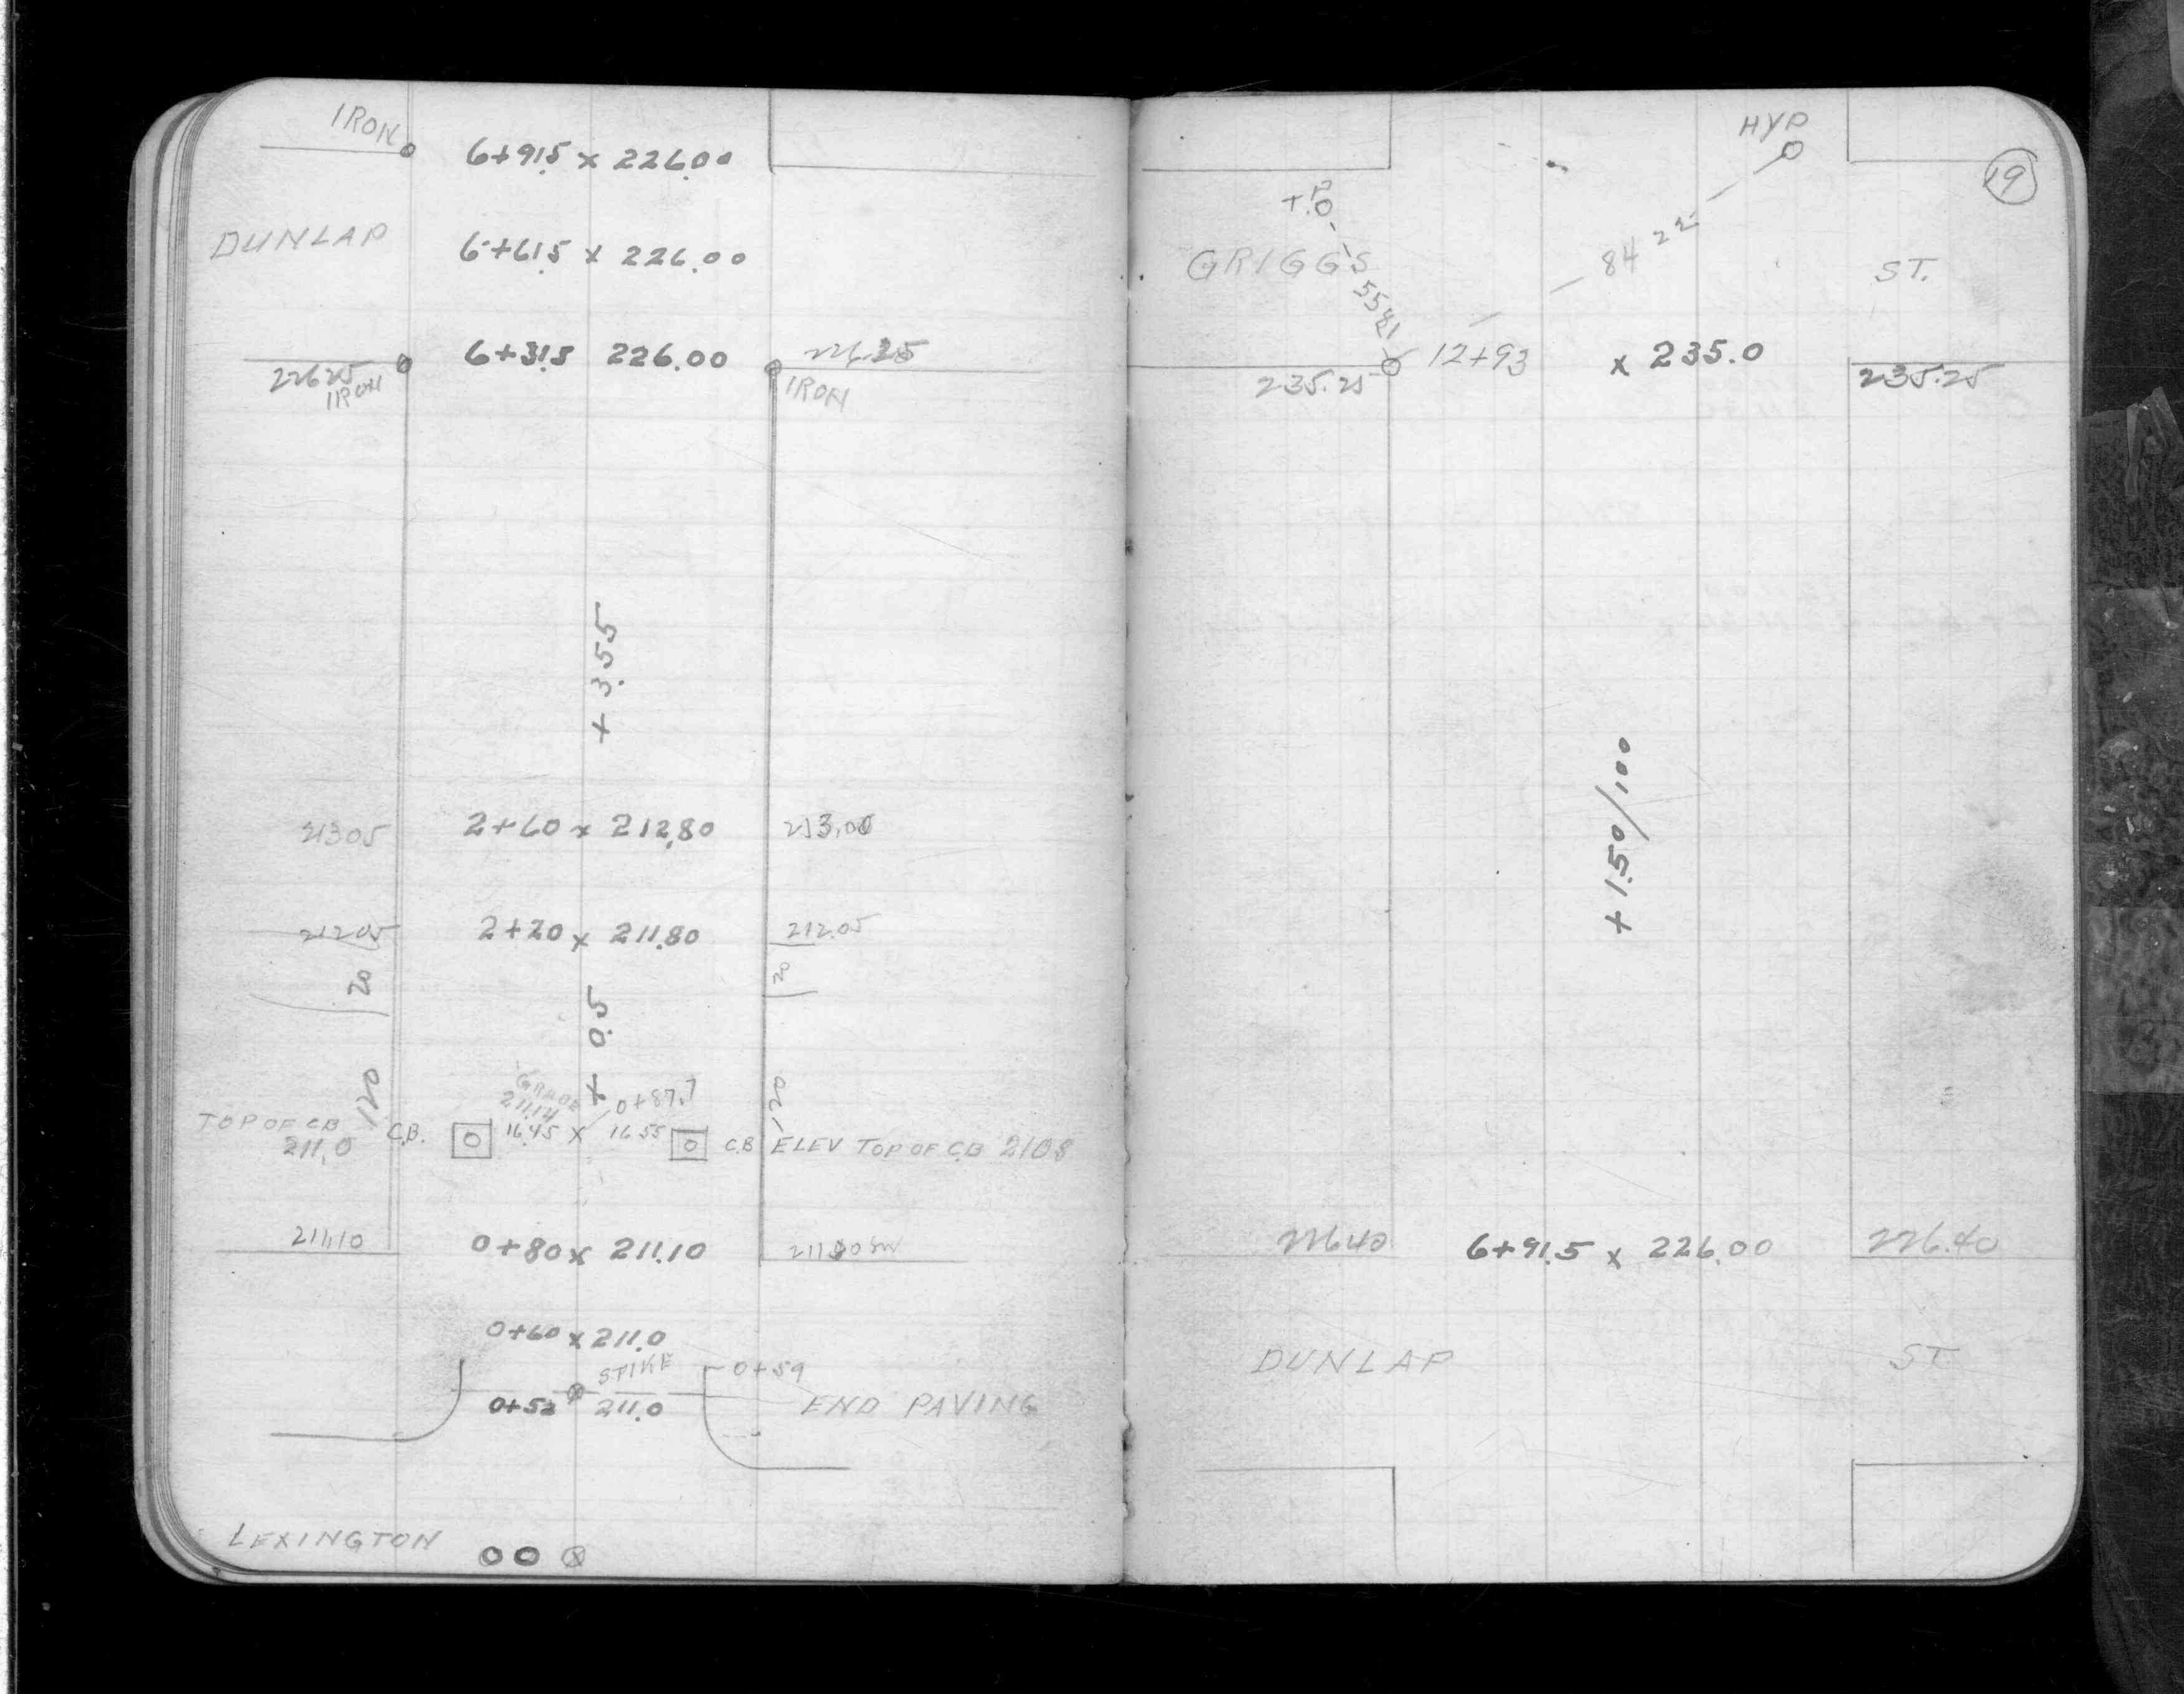 IRON
6+91.5 x 226.00
DUNLAP
6+61.5 x 226.00
6+31.5 226.00
226.25
IRON
IRON
+ 3.55
213.05
2+60 x 212.80
212.05
2+20 x 211.80
212.05
20
20
+ 0.5
120
120
GRADE
211.14
0+87.7
TOP OF CB
211.0
C.B.
16.45 x 16.55
C.B
ELEV TOP OF C.B 210.8
211.10
0+80 x 211.10
0+60 x 211.0
SPIKE
0+59
0+52 211.0
END PAVING
LEXINGTON
00
HYP
19
T.P.
GRIGGS
84 22
ST.
55 81
12+93
x 235.0
235.25
235.25
+ 1.50/100
226.40
6+91.5 x 226.00
226.40
DUNLAP
ST